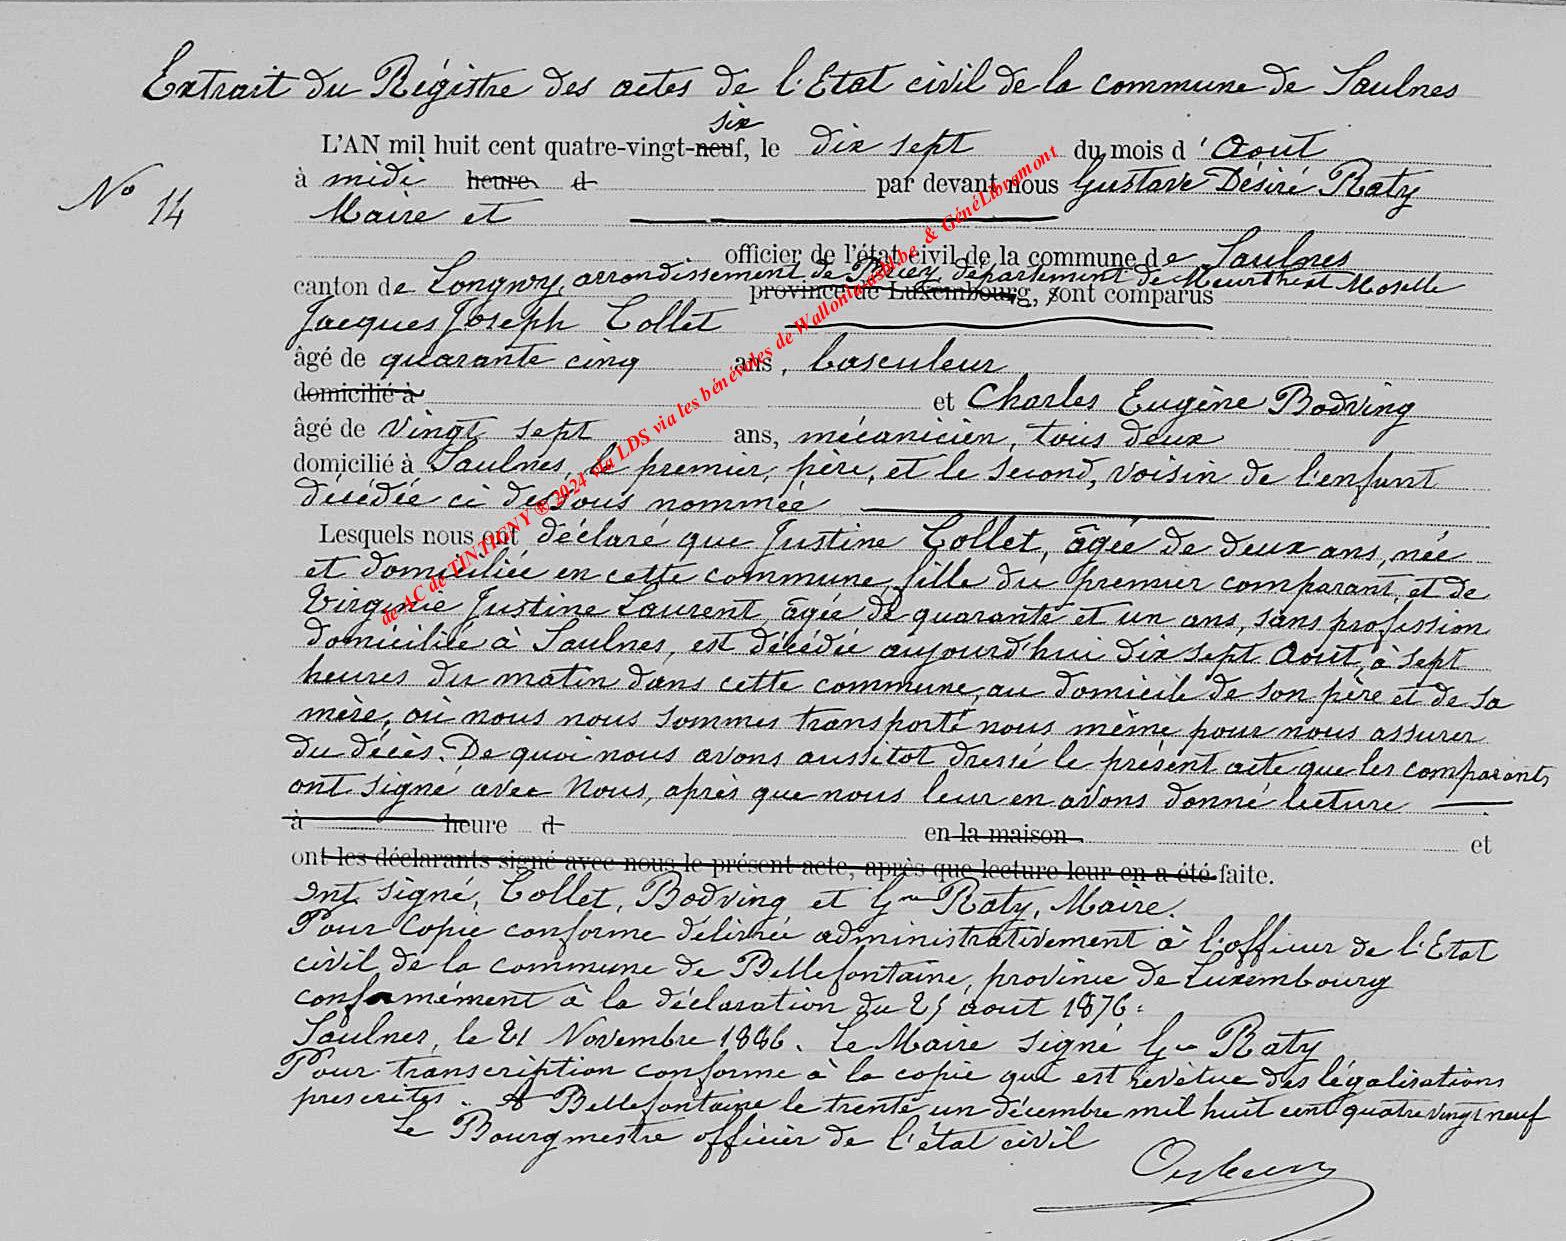 Extrait du Régistre des actes de l'Etat civil de la commune de Saulnes
six
L'AN mil huit cent quatre-vingt-neuf, le dix sept du mois d'Aout
N° 14
à midi heure d par devant nous Gustave Désiré Raty
Maire et
officier de l'état civil de la commune de Saulnes
canton de Longwy, arrondissement de Briey, département de Meurthe et Moselle
province de Luxembourg, sont comparus
Jacques Joseph Collet
âgé de quarante cinq ans, basculeur
domicilié à et Charles Eugène Bodving
âgé de vingt sept ans, mécanicien, tous deux
domicilié à Saulnes, le premier, père, et le second, voisin de l'enfant
décédée ci dessous nommée
Lesquels nous ont déclaré que Justine Collet, âgée de deux ans, née
et domiciliée en cette commune, fille du premier comparant, et de
Virginie Justine Laurent, âgée de quarante et un ans, sans profession
domiciliée à Saulnes, est décédée aujourd'hui dix sept Aout, à sept
heures du matin dans cette commune, au domicile de son père et de sa
mère, où nous nous sommes transporté nous même pour nous assurer
du décès. De quoi nous avons aussitot dressé le présent acte que les comparants
ont signé avec Nous, après que nous leur en avons donné lecture
à heure d en la maison et
ont les déclarants signé avec nous le présent acte, après que lecture leur en a été faite.
Ont signé, Collet, Bodving et Gve Raty, Maire.
Pour Copie conforme délivrée administrativement à l'officier de l'Etat
civil de la commune de Bellefontaine, province de Luxembourg
conformément à la déclaration du 25 aout 1876.
Saulnes, le 21 Novembre 1886. Le Maire signé Gve Raty
Pour transcription conforme à la copie qui est revêtue des légalisations
prescrites. A Bellefontaine le trente un décembre mil huit cent quatre vingt neuf
Le Bourgmestre officier de l'état civil
de AC de TINTIGNY ® 2024 via LDS via les bénévoles de Wallonia asbl.be & GénéLibramont